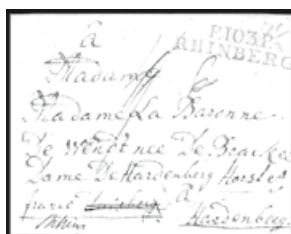 à
P.103.P.
RHINBERG
Madame
Madame La Baronne
De Wendt nee De Bracke
Dame De Hardenberg
à
Hardenberg